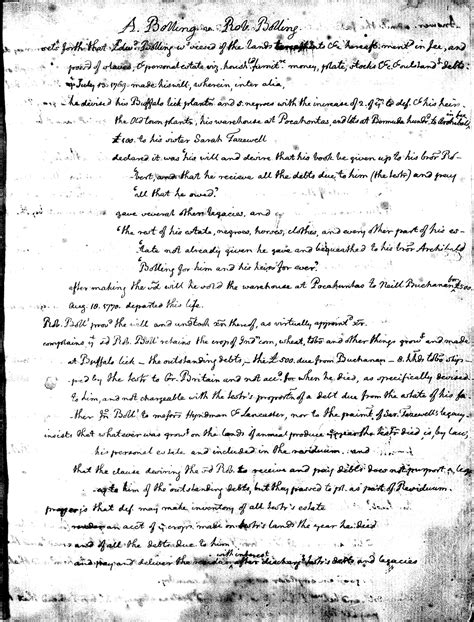 A. Bolling vs Rob. Bolling
sets forth that Edwd. Bolling seised of the lands & hereafter mentd in fee, and
possd of slaves, & personal estate viz. househd furnitre money, plate, stocks &c & outstandg debts
July 13. 1769. made his will, wherein, inter alia,
he devised his Buffalo lick plantn and negroes with the increase of 2. of ym to def. & his heirs
the Old town plantn, his warehouse at Pocahontas, and lots at Bermuda hundd to Archibald
£100. to his sister Sarah Tazewell
declared it was his will and desire that his book be given up to his bror Ro-
bert, and that he recieve all the debts due to him (the testr) and pay
all that he owed.
gave several other legacies, and
'the rest of his estate, negroes, horses, clothes, and every other part of his es-
tate not already given he gave and bequeathed to his bror Archibald
Bolling for him and his heirs for ever.'
after making the sd will he sold the warehouse at Pocahontas to Neill Buchanan for £500.
Aug. 10. 1770. departed this life.
Rob. Boll' provd the will and undertook exn thereof, as virtually appointd exr.
complains yt sd Rob. Boll' retains the crop of Indn corn, wheat, tobo and other things growg and made
at Buffalo lick – the outstanding debts, – the £500. due from Buchanan – 8. hhds tobo ship-
ped by the testr to Gr. Britain and not accd for when he died, as specifically devised
to him, and not chargeable with the testr's proportn of a debt due from the estate of his fa-
ther Jn Boll' to messrs Hyndman & Lancaster, nor to the paimt of Sar. Tazewell's legacy
insists that whatever was growg on the lands of annual produce the testr died is, by law,
his personal estate and included in the residuum. and
that the clause desiring the sd Rob. to recieve and pay debts does not purport a leg-
acy to him of the outstanding debts, but they passed to pl. as part of Residuum.
prays that def. may make inventory of all testr's estate
render an acct of ye crops made on testr's lands the year he died
and of all the debts due to him
and pay and deliver the residue with interest after discharg testr's debts and legacies